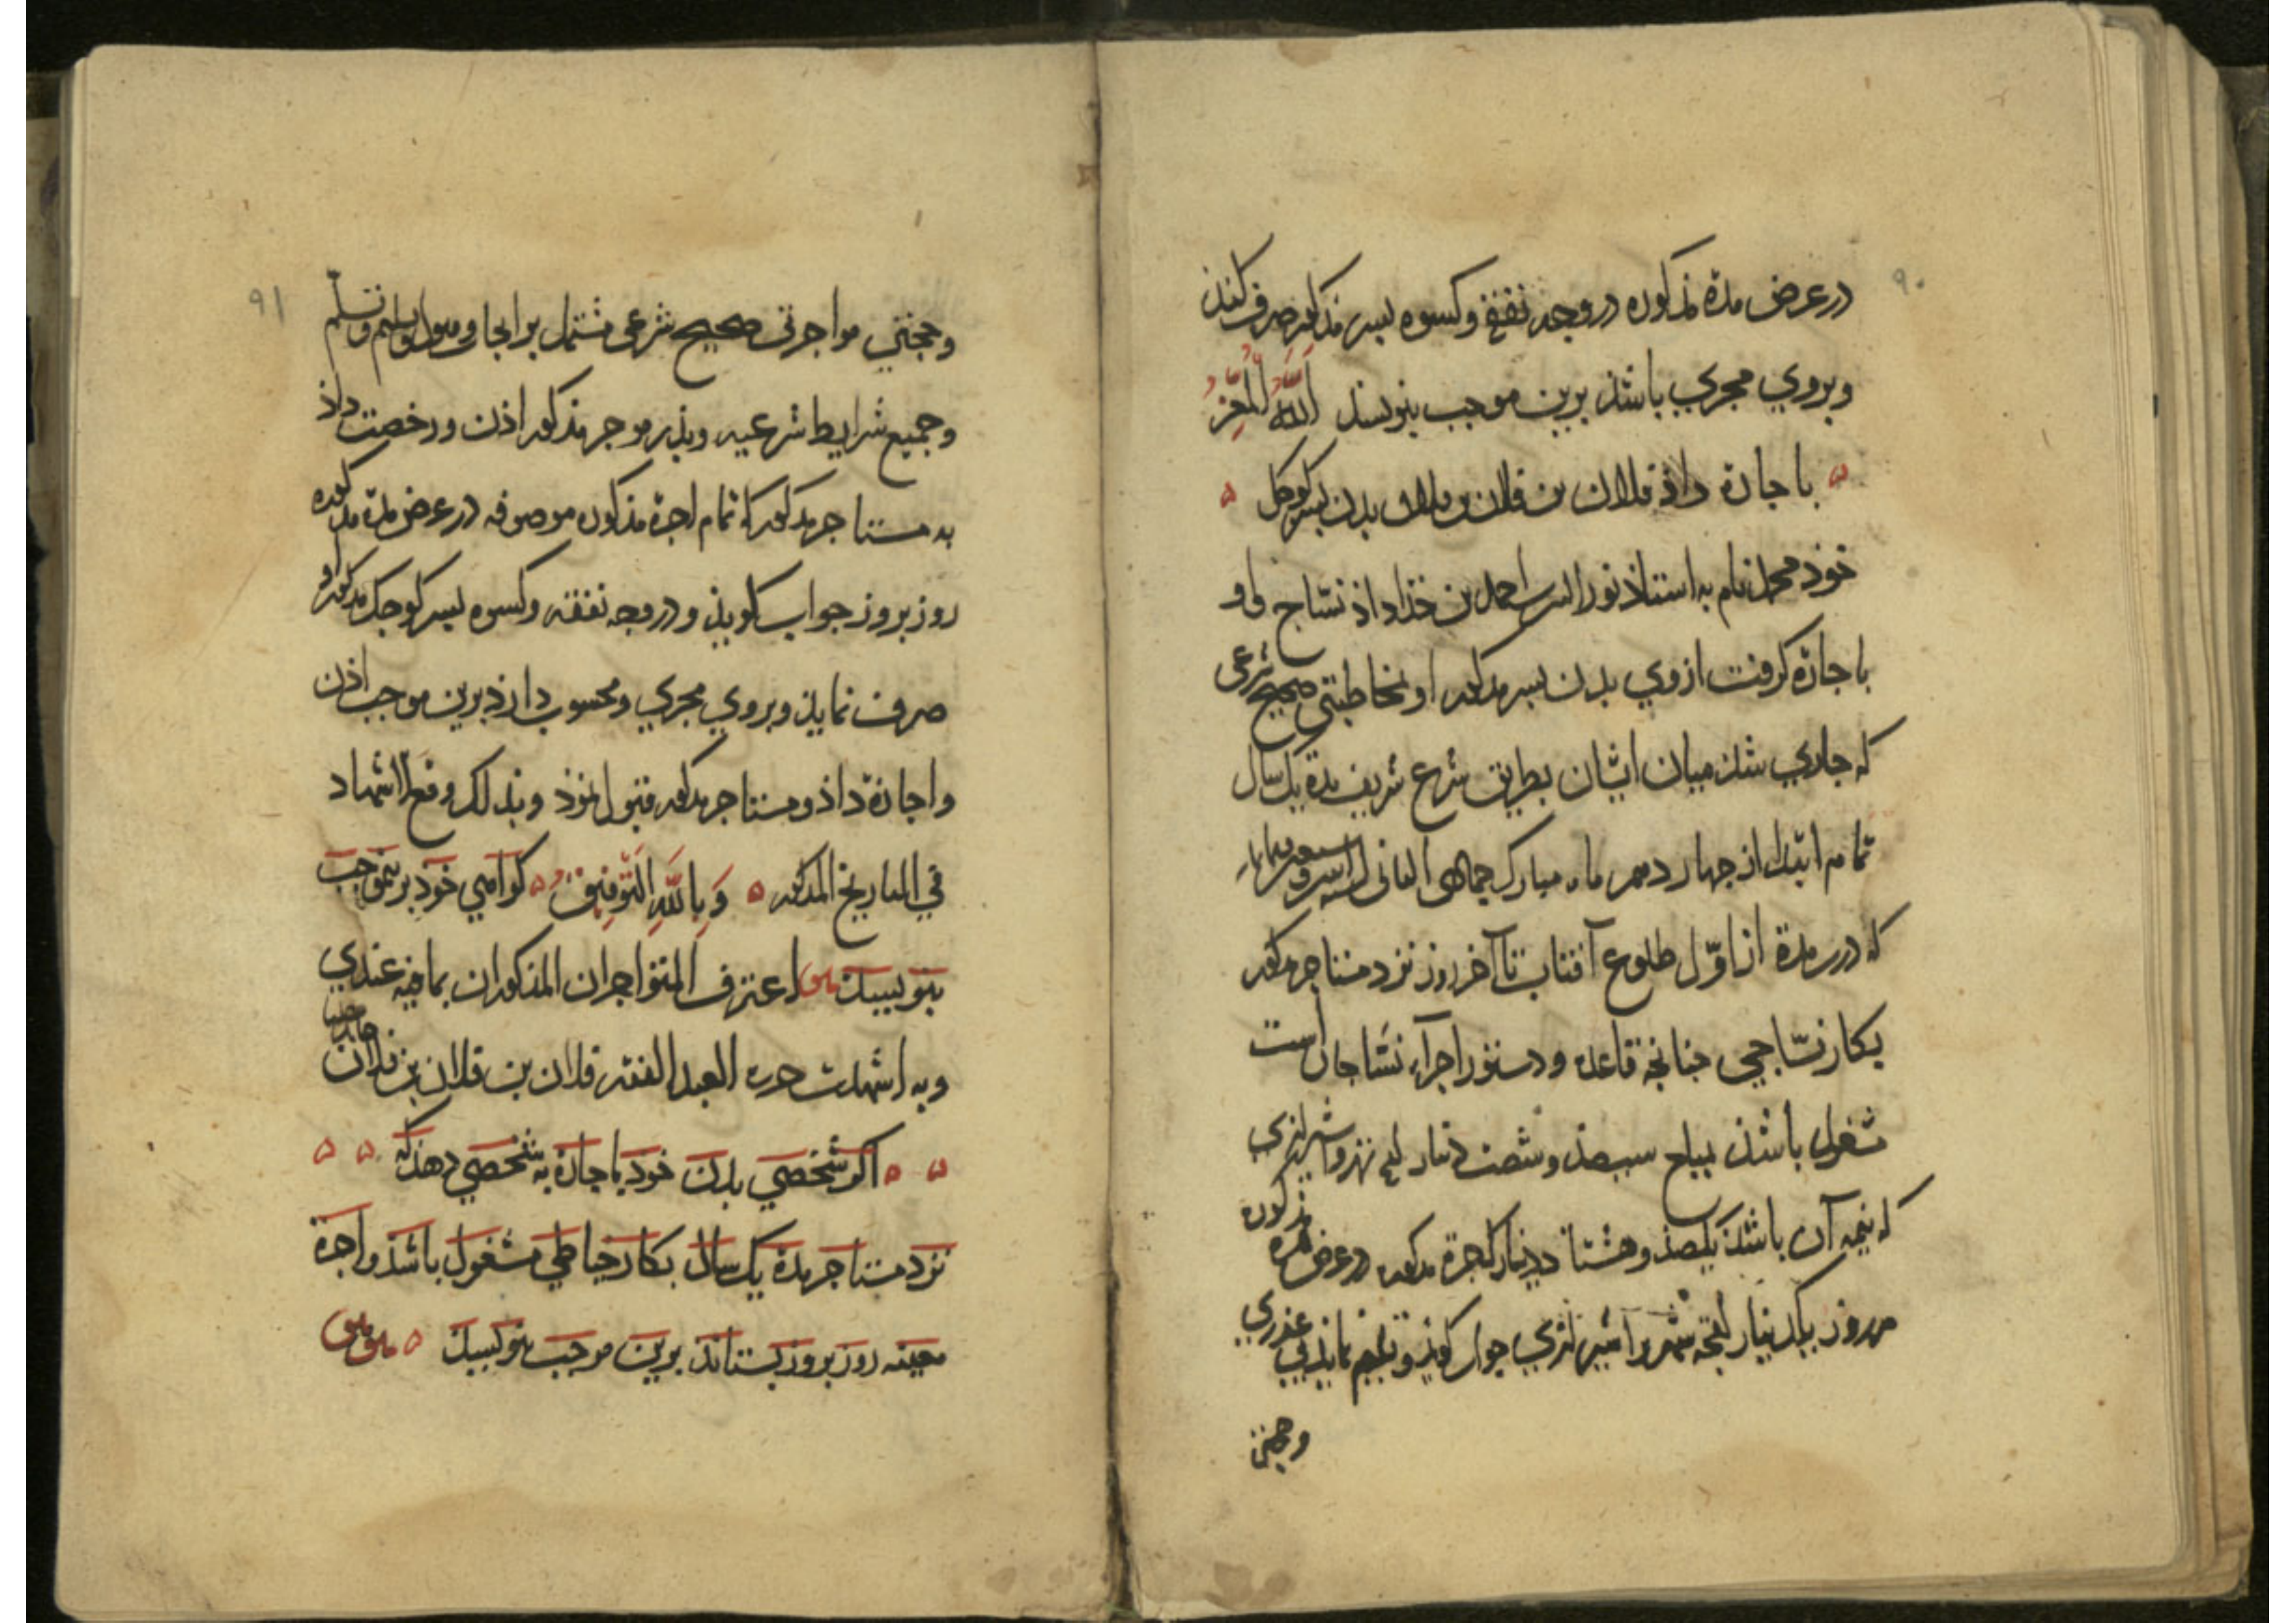 ٩٠
در عرض مدة مذکوره در وجه نفقه و کسوه پسر مذکور صرف کند
و بروی مجری باشد برین موجب بنویسند اَللّهُ الْمُعِزُّ
باجارة داذ فلان بن فلان بن فلان بدن پسر کوچک
خوذ محمد نام به استاذ نور الدین احمد بن خذاداذ نسّاج و او
باجازه کرفت از وی بدن پسر مذکور او بمخاطبتی صحیح شرعی
که جاری شد میان ایشان بطریق شرع شریف مدة یک سال
تمام ابتدا از چهاردهم ماه مبارک جمادی الثانی لسنه
که درین مدة از اوّل طلوع آفتاب تا آخر روز نزد مستاجر مذکور
بکار نسّاجی چنانچه قاعده و دستور اجرآء نسّاجان است
مشغول باشذ بمبلغ سیصذ و شصت دینار شیرازی
که نیمه آن باشذ یکصذ و هشتاد دینار کاجرة مذکوره در عرض مدة مذکوره
هر روز یکدینار شیرازی جواب کوید و تسلیم نماید بی عذری
و حجتی
٩١
و حجتی مواجرتی صحیح شرعی مشتمل بر ایجاب و قبول و تسلیم و تسلّم
و جمیع شرایط شرعیه و پذر موجر مذکور اذن و رخصت داذ
به مستاجر مذکور که تمام اجرة مذکوره موصوفه در عرض مدة مذکوره
روز بروز جواب کویذ و در وجه نفقه و کسوه پسر کوچک مذکور او
صرف نمایذ و بروی مجری و محسوب دارذ برین موجب اذن
و اجازة داذ و مستاجر مذکور قبول نموذ و بذلک وقع الاشهاد
فی التاریخ المذکور وَبِاللّهِ التَّوفِیقُ کواهی خوذ برینموجب
بنویسد اعترف المتواجران المذکوران بما فیه عندی
و به اشهدت حرره العبد الفقیر فلان بن فلان بن فلان
اکر شخصی بدن خوذ باجارة به شخصی دهذ که
نزد مستاجر مدة یک سال بکار خیاطی مشغول باشذ و اجرة
معینه روز بروز بستاند برین موجب بنویسد